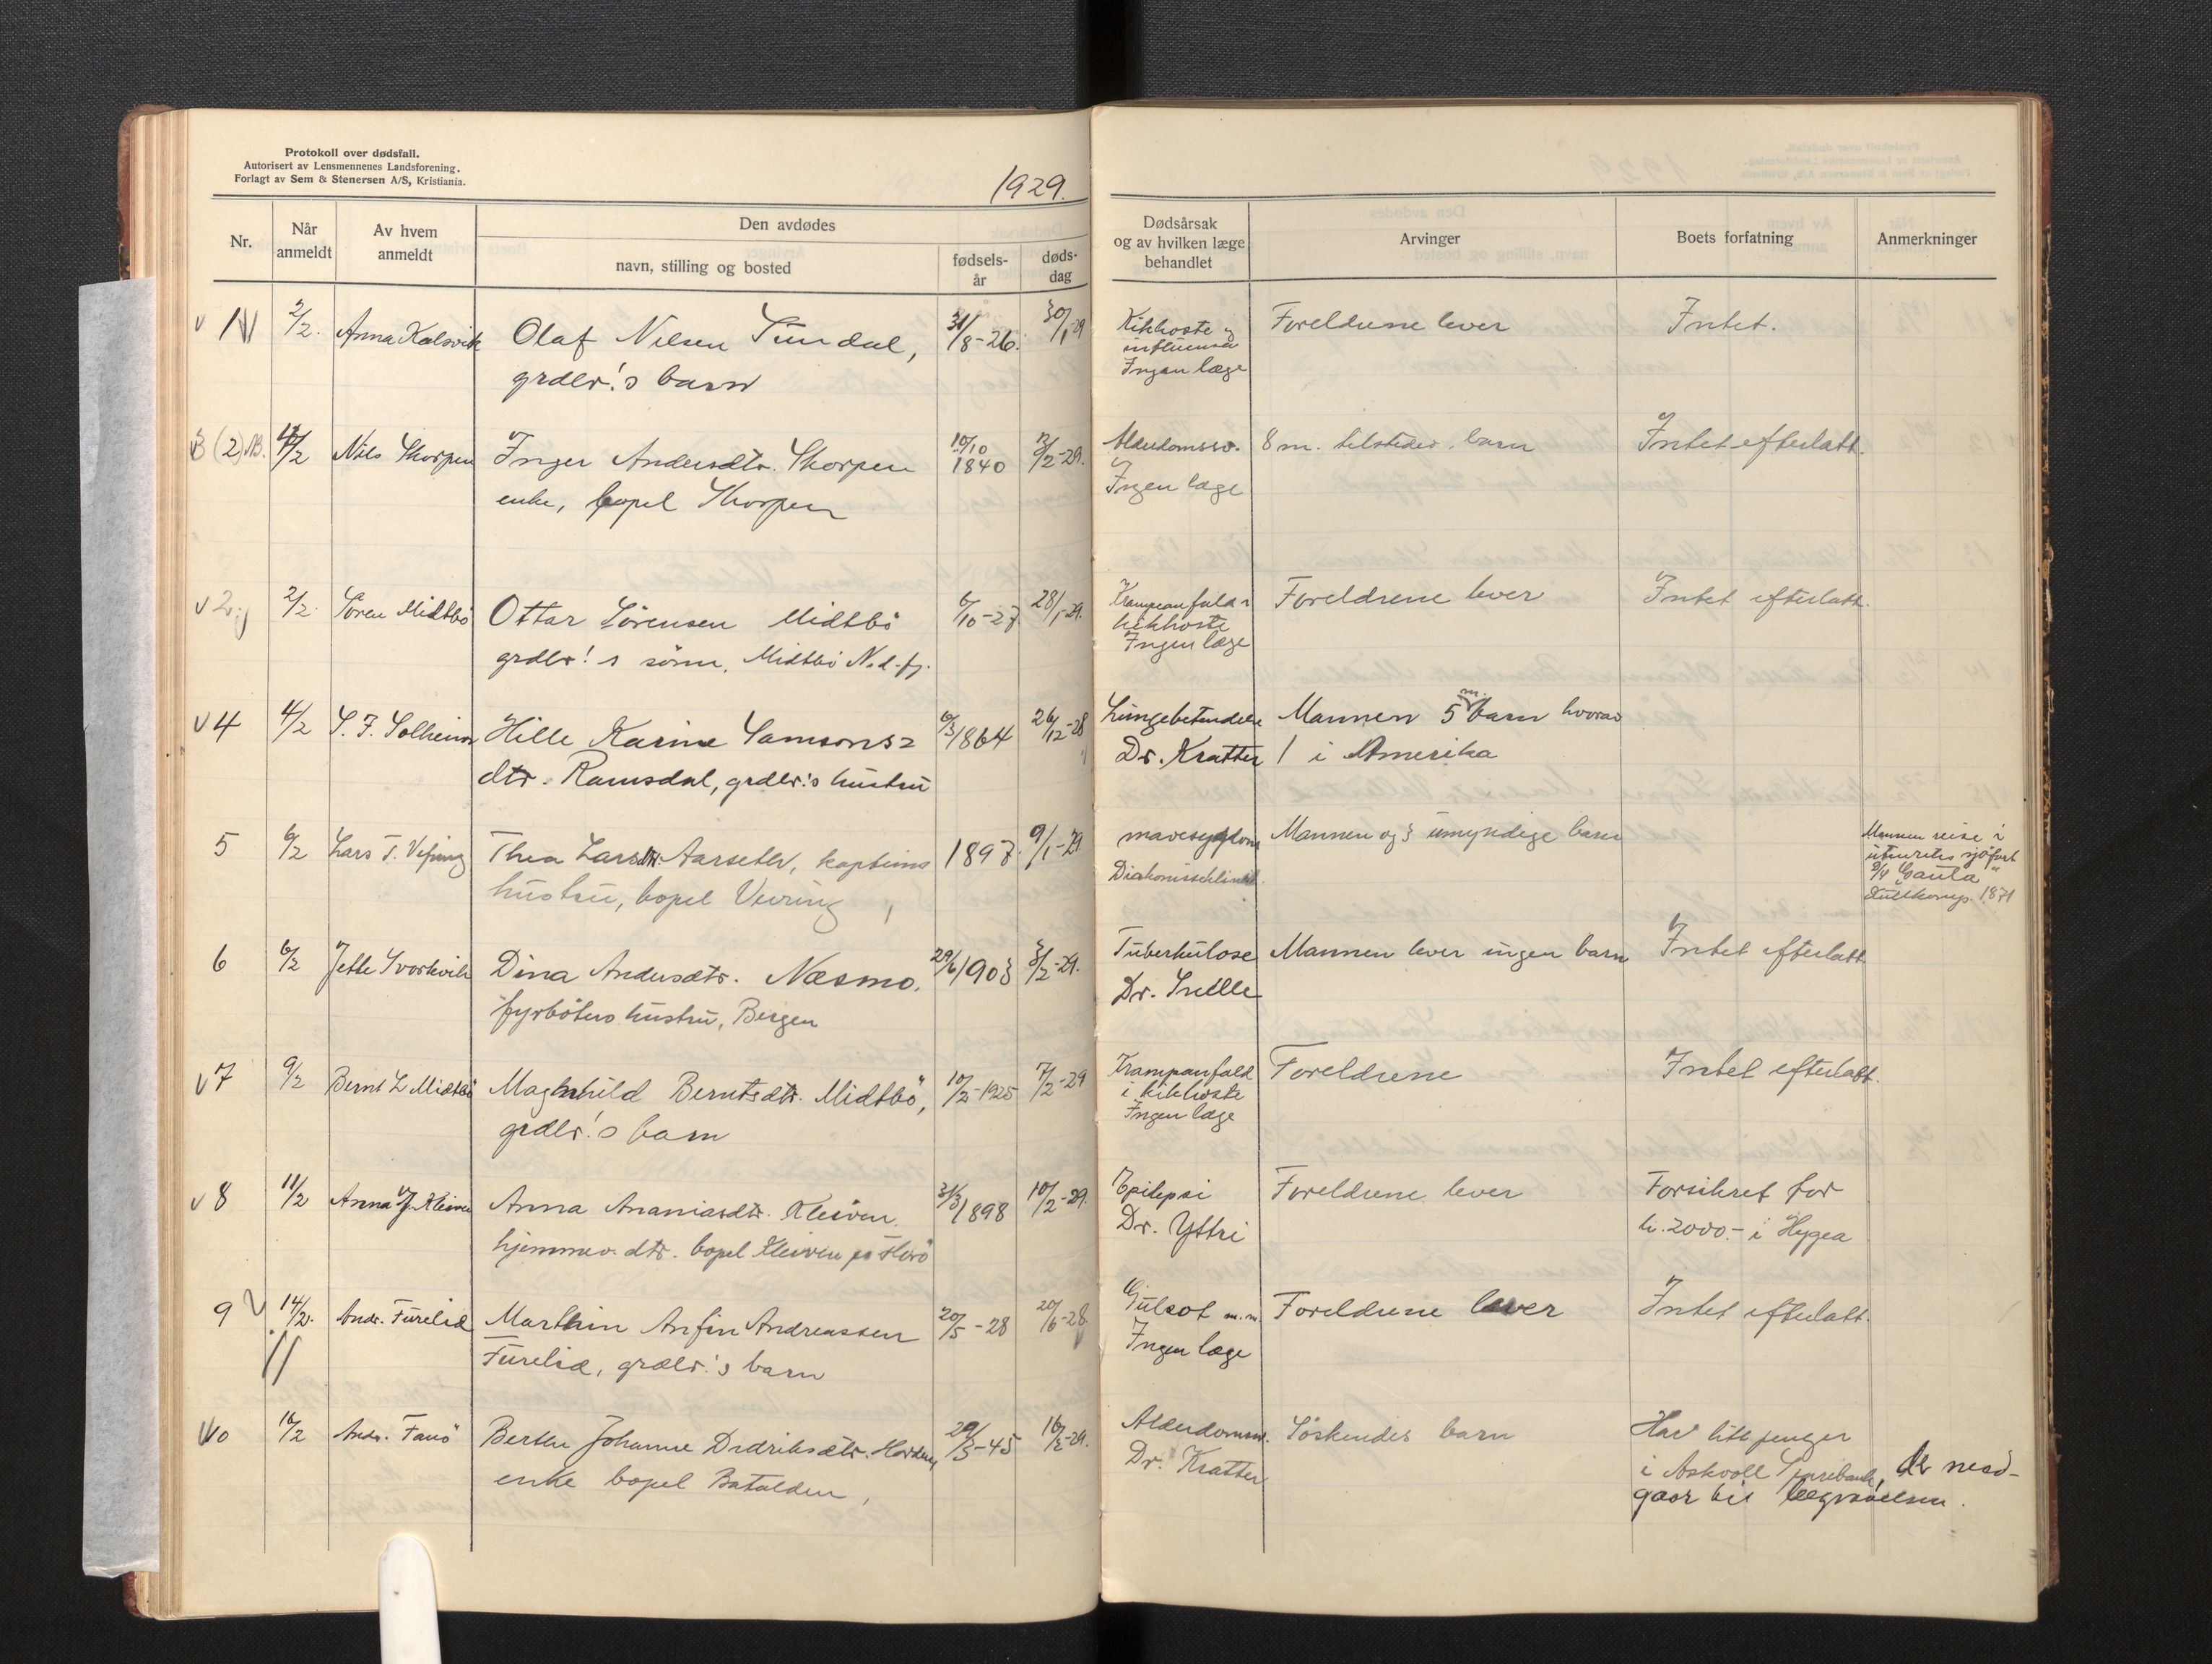 Protokoll over dødsfall.
Autorisert av Lensmennenes Landsforening.
Forlagt av Sem & Stenersen A/S, Kristiania.
1929.
Nr.
Når anmeldt
Av hvem anmeldt
Den avdødes
navn, stilling og bosted
fødsels-år
døds-dag
Dødsårsak og av hvilken læge behandlet
Arvinger
Boets forfatning
Anmerkninger
1 2/2. Anna Kalsvik Olaf Nilsen Sundal, 31/8-26. 30/1 29 Kikhoste og Foreldrene lever Intet.
grdbr.'s barn influensa
Ingen læge
(2) Nils Skorpen Inger Andersdtr. Skorpen 10/10 1840 12/2-29. Alderdomssv. 8 m. tilstedev. barn Intet efterlatt.
enke, bopel Skorpen Ingen læge
2 2/2. Søren Midtbö Ottar Sörensen Midtbö 6/10-27 28/1-29. Krampeanfald i Foreldrene lever Intet efterlatt.
grdbr.'s sönn, Midtbö kikhoste
Ingen læge
v 4 4/2 S. F. Solheim Hille Karine Samsons= 6/3 1864 26/12-28 Lungebetendelse Mannen 5 m. barn hvorav
dtr. Ramsdal, grdbr.'s hustru Dr. Kratter 1 i Amerika
5 6/2 Lars T. Vefring Thea Larsdtr. Aarseth, kapteins 1897. 9/1-29. Mannen og 3 umyndige barn Mannen reise i
hustru, bopel Vevring utenriks sjöfart
"Gaula"
6 6/2 Jette Svortevik Dina Andersdtr. Næsmo. 29/6 1903 3/2-29. Tuberkulose Mannen lever ingen barn Intet efterlatt.
fyrböters hustru, Bergen
v 7 9/2 Bernt L Midtbö Maghnhild Berntsdtr. Midtbö, 10/2-1925 7/2-29 Krampanfald Foreldrene Intet efterlatt.
grdbr.'s barn i kikhoste
Ingen læge
v 8 11/2 Anna J. Kleiven Anna Ananiasdtr. Kleiven. 31/3 1898 10/2-29. Epilepsi Foreldrene lever Forsikret for
hjemmev. dtr. bopel Kleiven Dr. Yttri kr. 2000.- i Hygea
9 14/2. Andr. Furelid Marthin Anfin Andreassen 20/5-28 20/6-28. Gulsot m.m. Foreldrene lever Intet efterlatt.
Furelid, grdbr.'s barn Ingen læge
10 16/2 Andr. Fanö Berthe Johanne Didriksdtr. 29/3-45 16/2-29. Alderdomssv. Söskendes barn Har litt penger
enke bopel Batalden, Dr. Kratter i Askvoll Sparebank, de ned-
gaar til begravelsen.